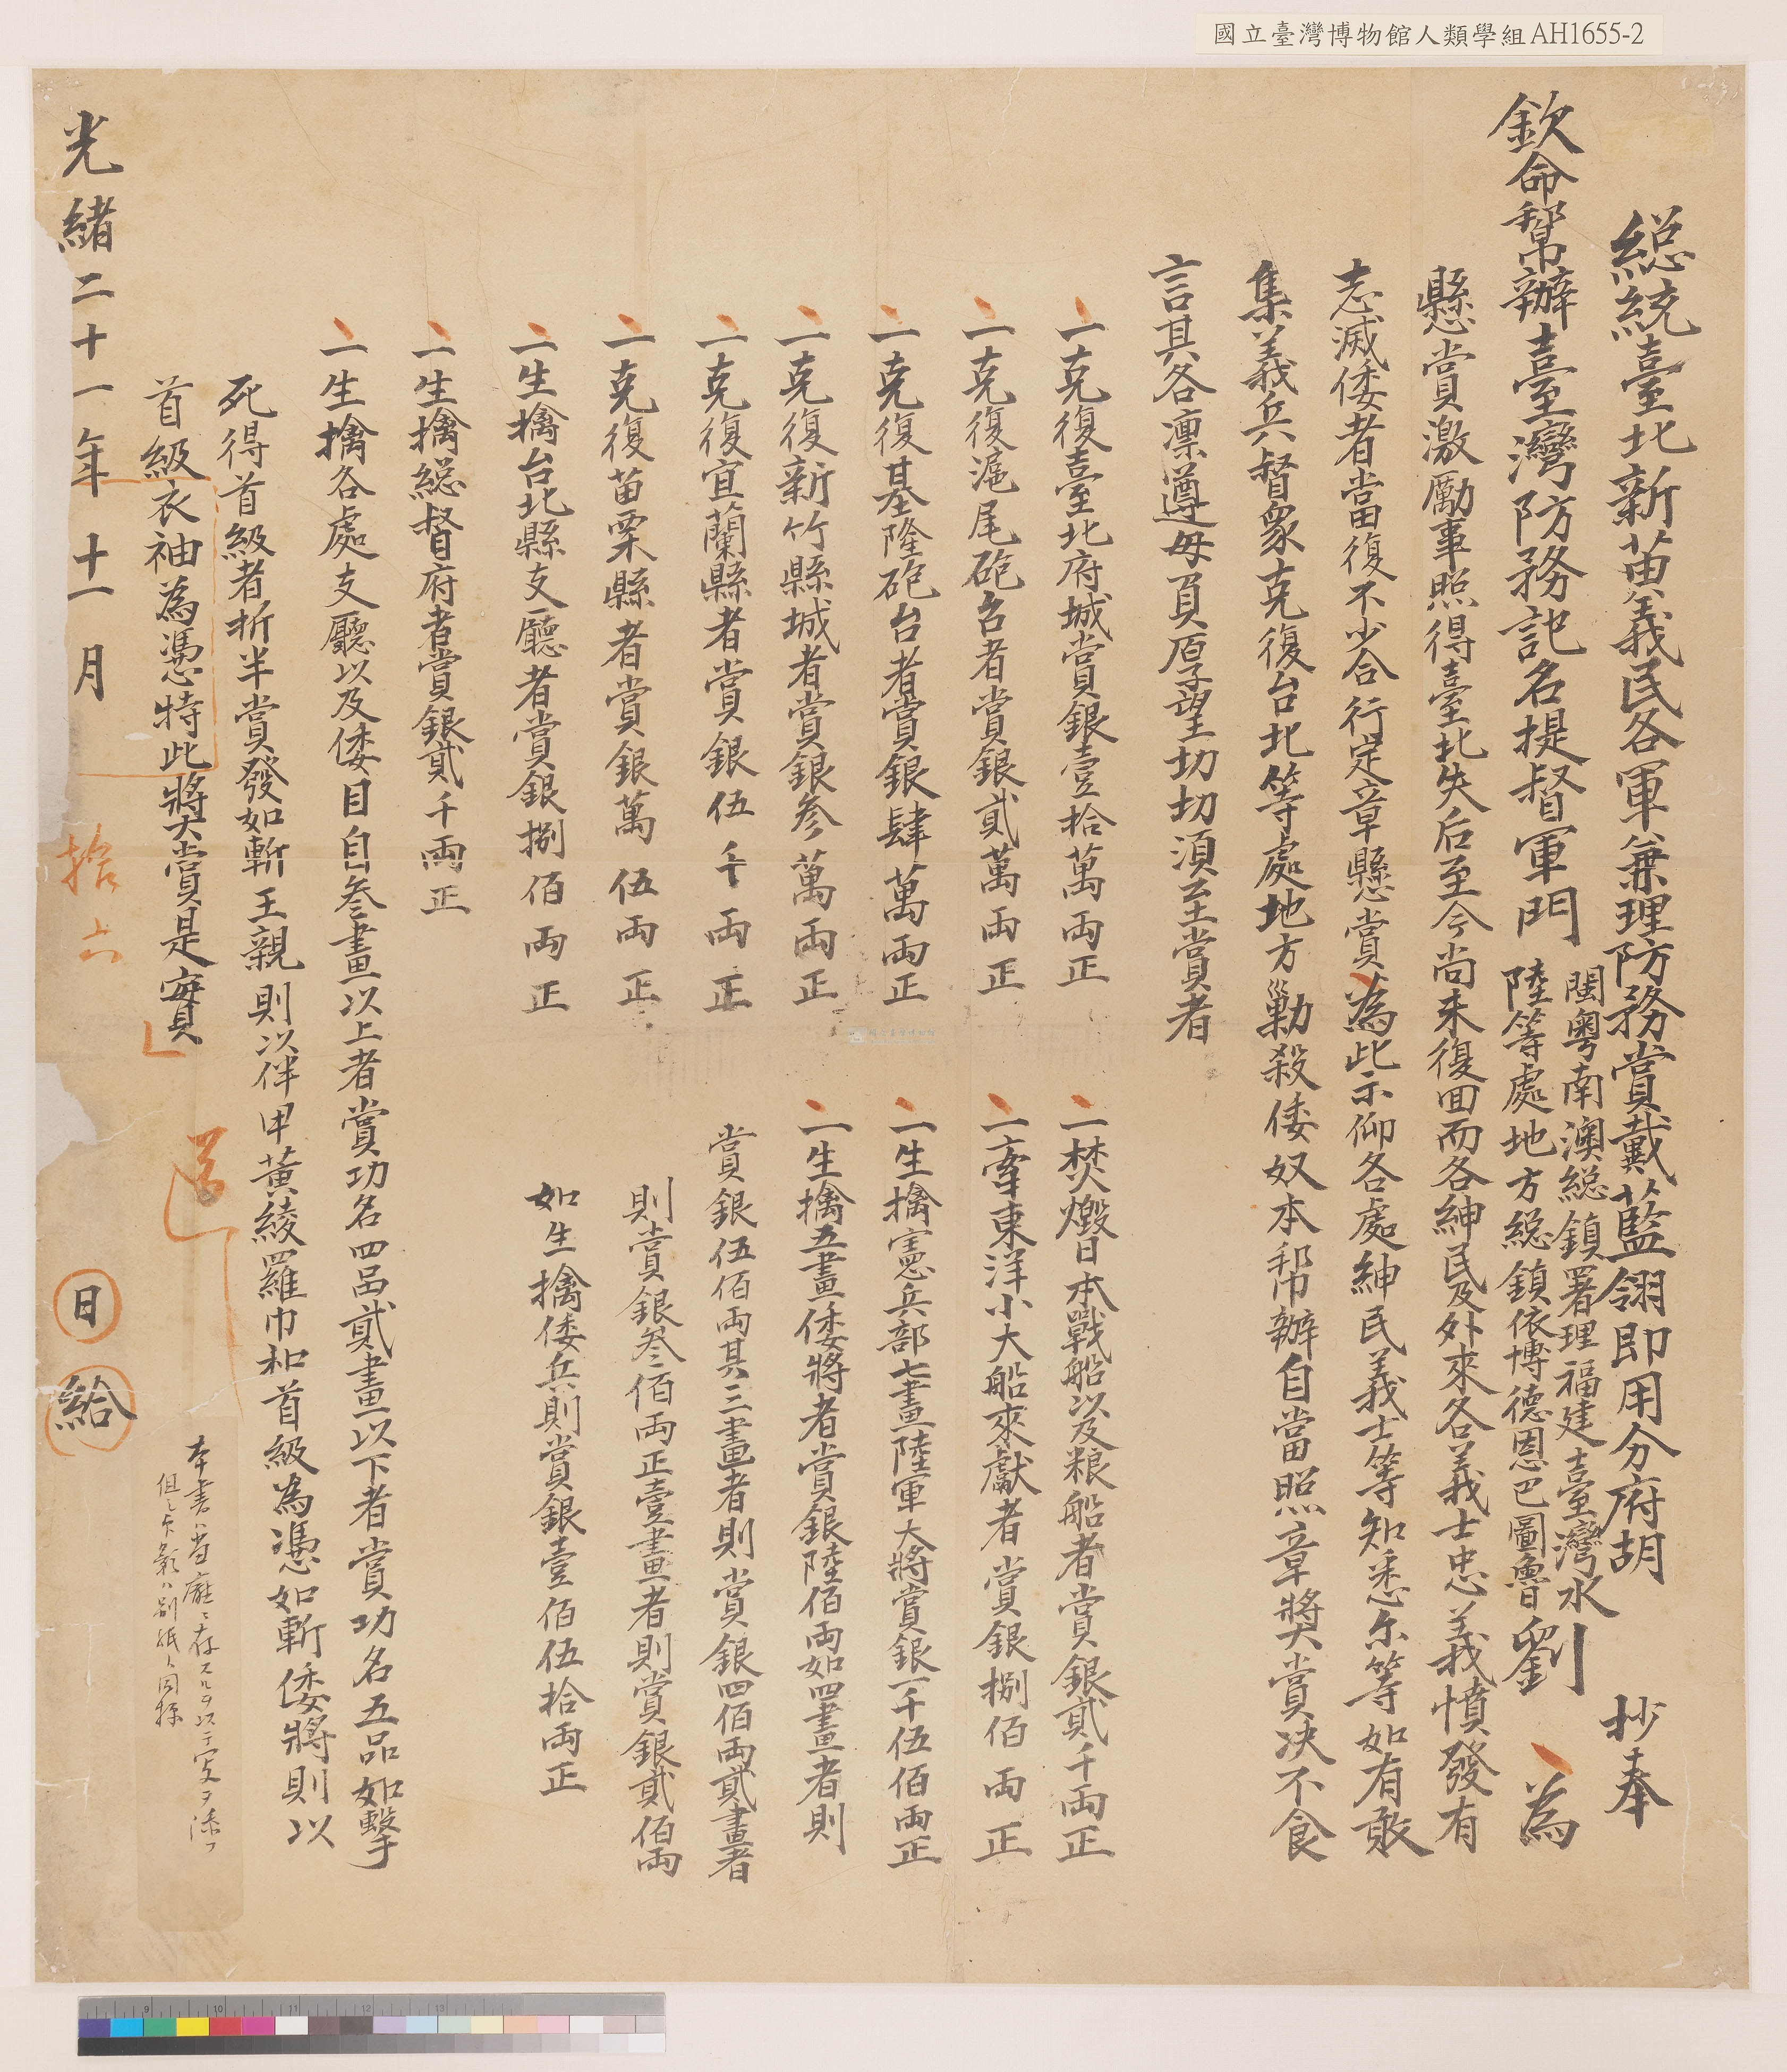 國立臺灣博物館人類學組AH1655-2
総統臺北新苗義民各軍兼理防務賞戴藍翎即用分府胡 抄奉
欽命幫辦臺灣防務記名提督軍門
閩粵南澳総鎮署理福建臺灣水
陸等處地方総鎮依博德恩巴圖魯
劉 為
懸賞激勵事照得臺北失后至今尚未復回而各紳民及外來各義士忠義憤發有
志滅倭者當復不少合行定章懸賞為此示仰各處紳民義士等知悉尔等如有敢
集義兵督眾克復台北等處地方勦殺倭奴本帮辦自當照章獎賞决不食
言其各凛遵毋負厚望切切須至賞者
一克復臺北府城賞銀壹拾萬両正
一克復滬尾砲台者賞銀貳萬両正
一克復基隆砲台者賞銀肆萬両正
一克復新竹縣城者賞銀参萬両正
一克復宜蘭縣者賞銀伍千両正
一克復苗栗縣者賞銀萬伍両正
一生擒台北縣支廳者賞銀捌佰両正
一生擒総督府者賞銀貳千両正
一焚燬日本戰船以及粮船者賞銀貳千両正
一牽東洋小大船來獻者賞銀捌佰両正
一生擒憲兵部七畫陸軍大將賞銀一千伍佰両正
一生擒五畫倭將者賞銀陸佰両如四畫者則
賞銀伍佰両其三畫者則賞銀四佰両貳畫者
則賞銀叁佰両正壹畫者則賞銀貳佰両
如生擒倭兵則賞銀壹佰伍拾両正
一生擒各處支廳以及倭目自叁畫以上者賞功名四品貳畫以下者賞功名五品如擊
死得首級者折半賞發如斬王親則以伴甲黃綾羅巾和首級為憑如斬倭將則以
首級衣袖為憑特此獎賞是實
遵
光緒二十一年十一月拾六日給
本書ハ当廰ニ存スルヲ以テ寫ヲ添フ